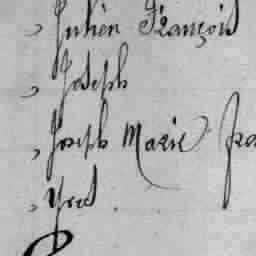 , Julien François
, Joseph
, Joseph Marie
, Yves